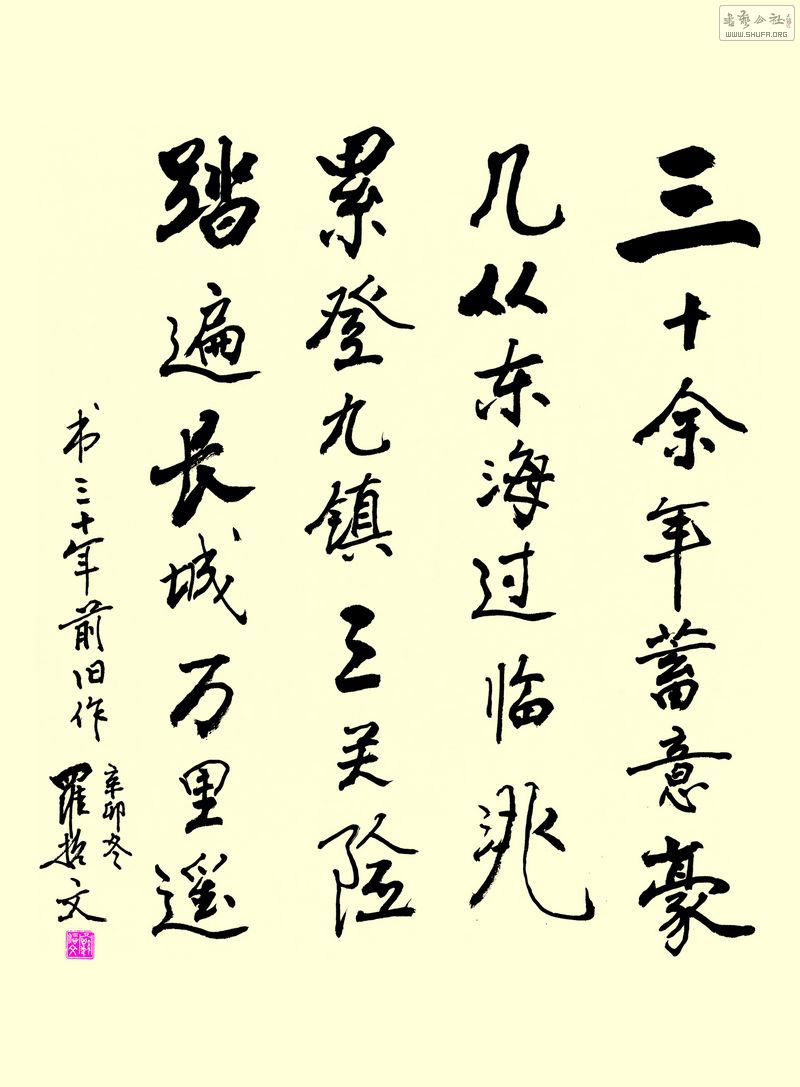 三十余年蓄意豪
几从东海过临洮
累登九镇三关险
踏遍长城万里遥
书三十年前旧作
辛卯冬
羅哲文
书艺公社
WWW.SHUFA.ORG